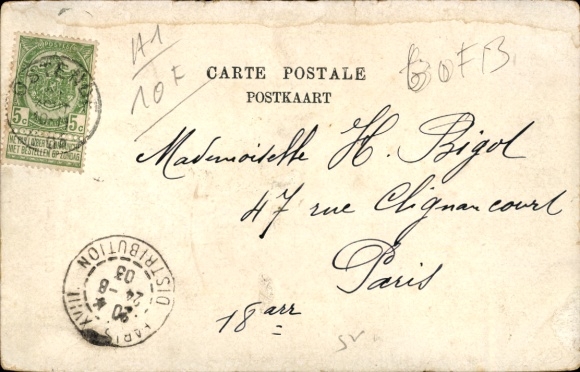 A1
10F
60FB
CARTE POSTALE
POSTKAART
OSTENDE
5c 5c
NIET BESTELLEN OP ZONDAG
Mademoiselle H. Bigot
47 rue Clignancourt
Paris
18 arr
PARIS XVIII
DISTRIBUTION
20
24 - 8
03